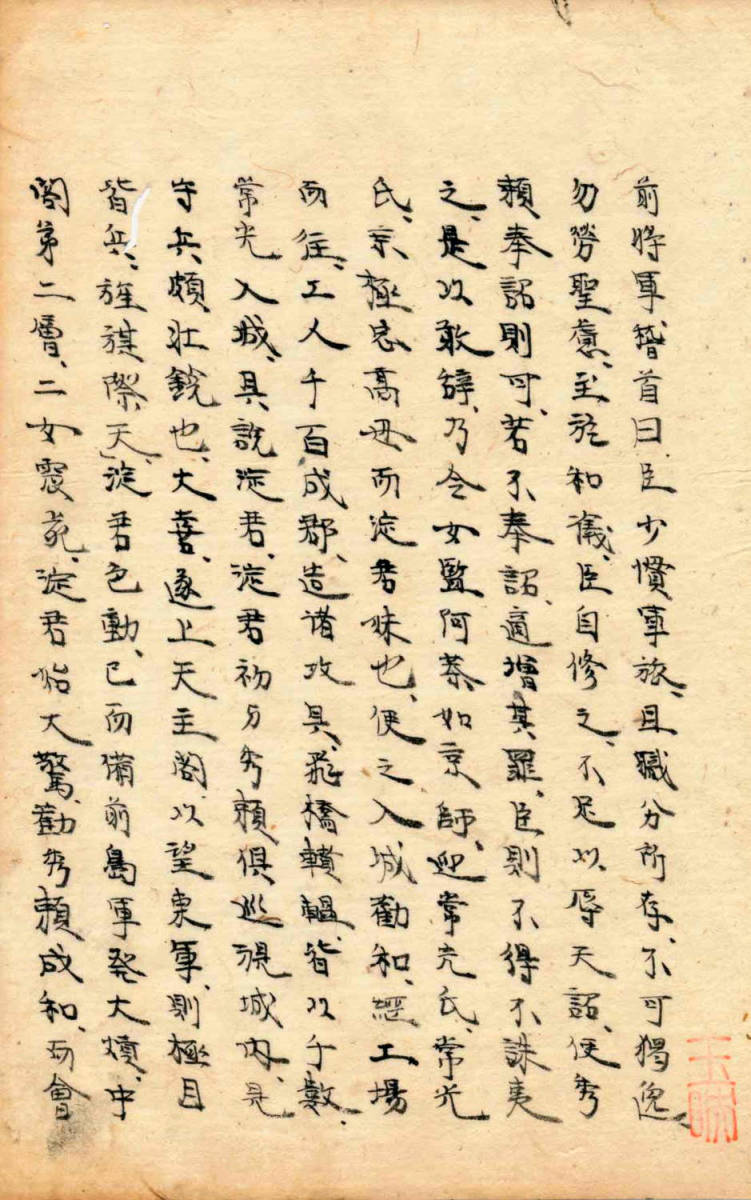 前將軍稽首曰、臣少慣軍旅、且職分所存、不可獨逸、
勿勞聖慮、至於和議、臣自修之、不足以辱天詔、使秀
頼奉詔則可、若不奉詔、適增其罪、臣則不得不誅夷
之、是以敢辭、乃令女監阿茶如京師、迎常光氏、常光
氏、京極忠高母而淀君妹也、使之入城勸和、經工場
而往、工人千百成郡、造諸攻具、飛橋轒轀、皆以千數、
常光入城、具說淀君、淀君初与秀頼俱巡視城内、見
守兵頗壯銳也、大喜、遂上天主閣、以望東軍、則極目
皆兵、旌旗際天、淀君色動、已而備前島軍發大熕、中
閣第二層、二女震死、淀君始大驚、勸秀頼成和、而會